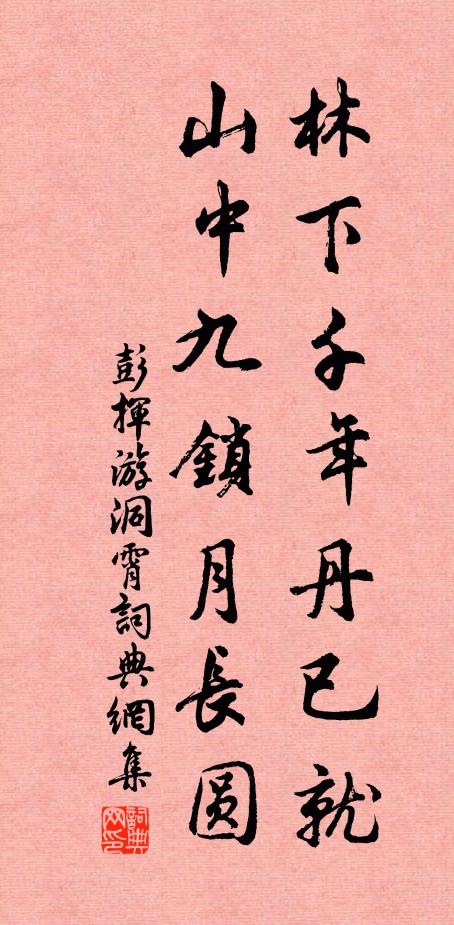 林下千年丹已就
山中九鎖月長圓
彭揮游洞霄詞典網集
詞典网印